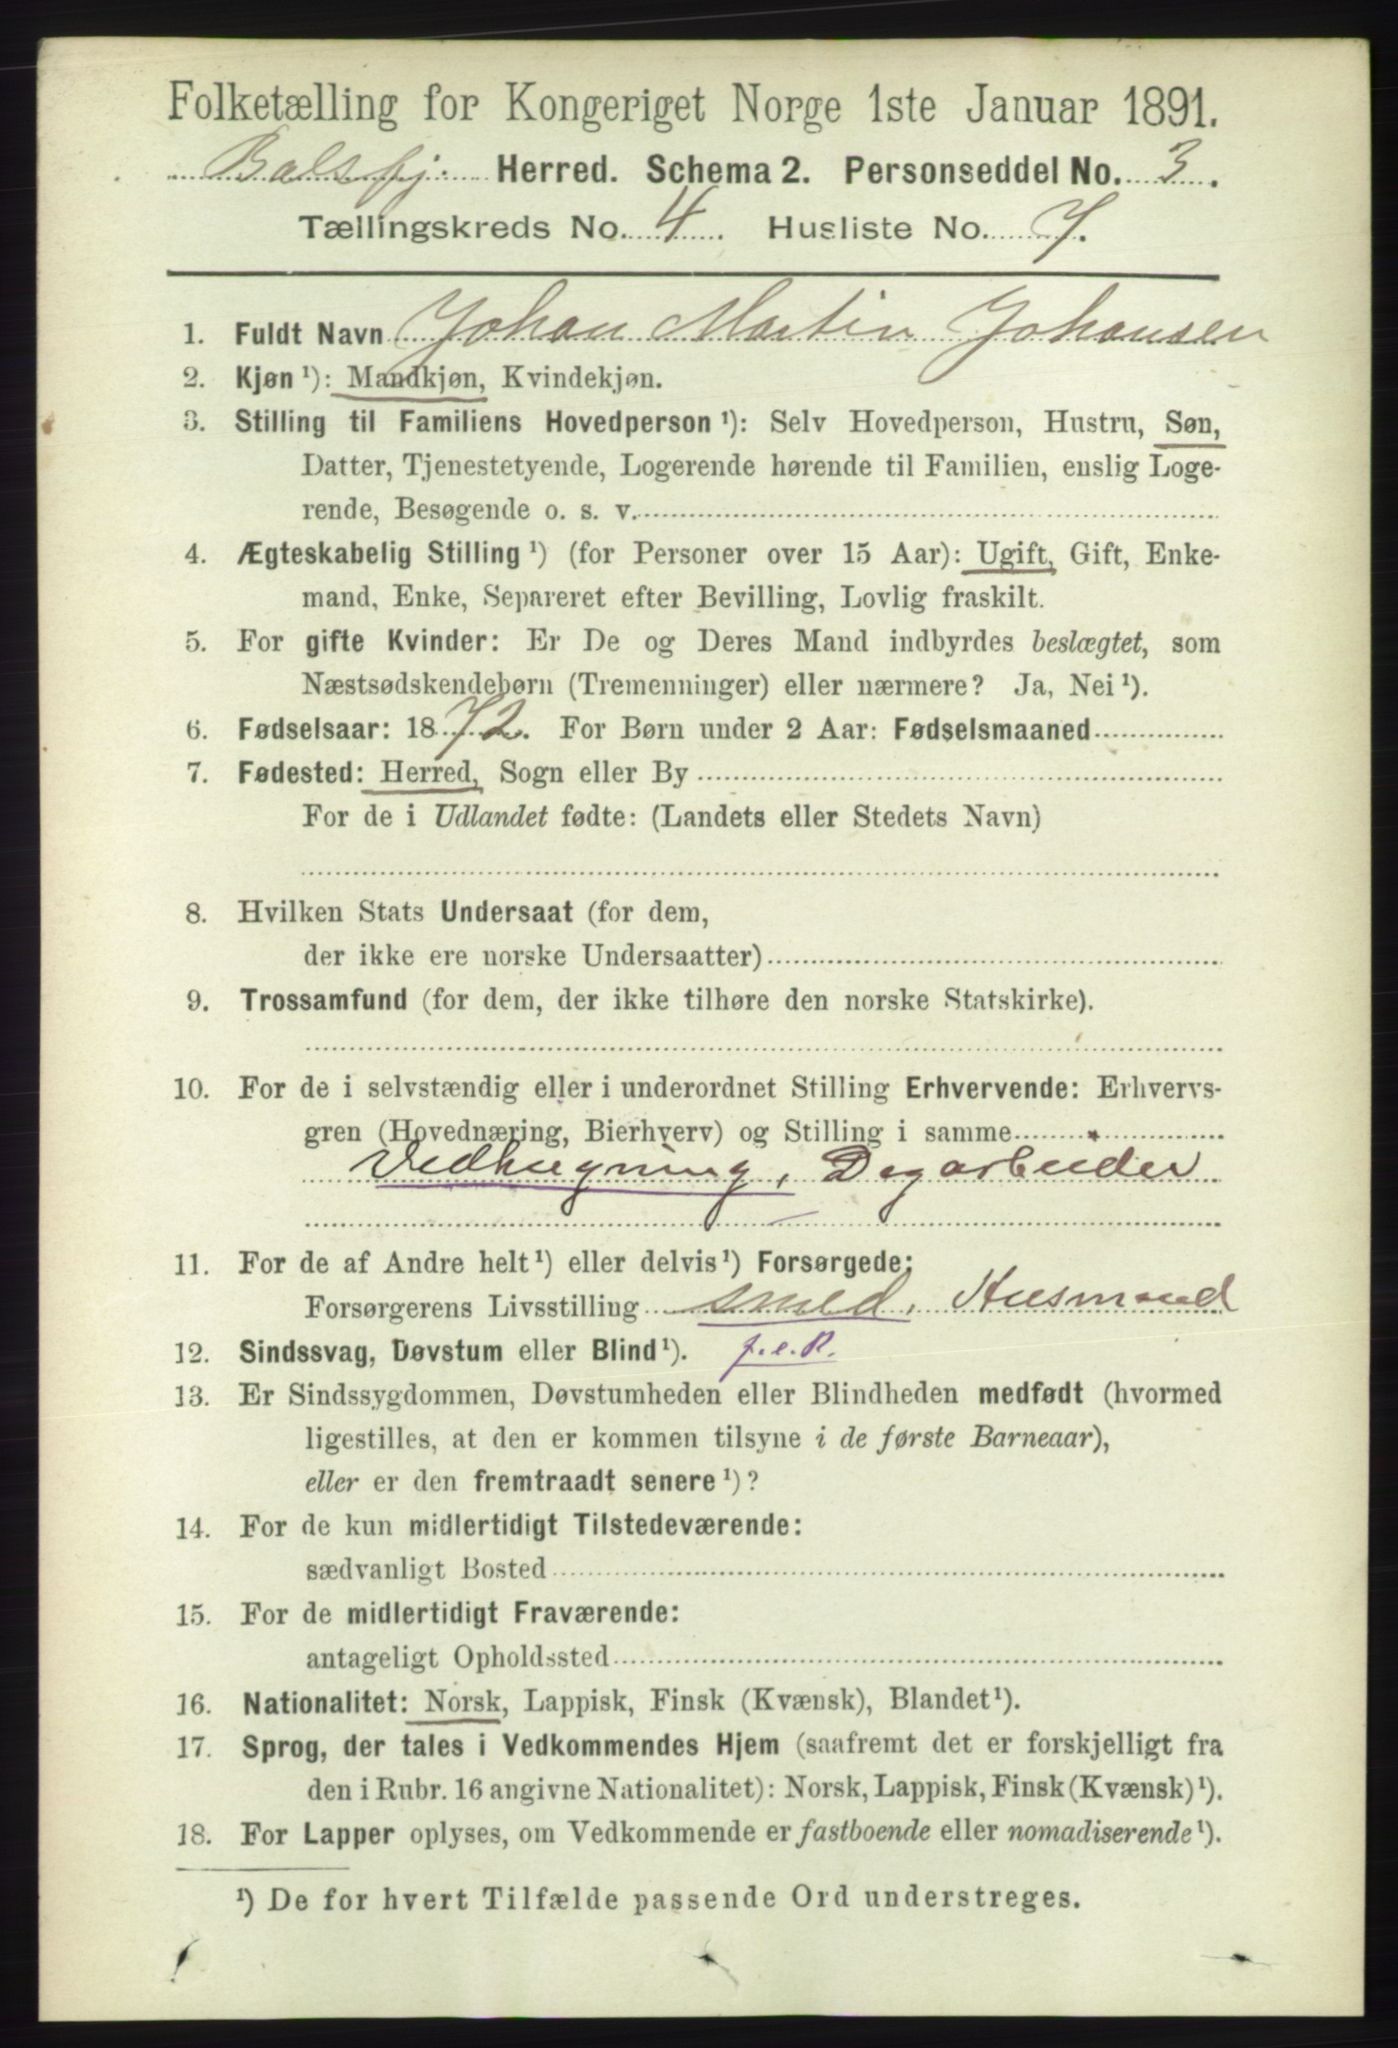 Folketælling for Kongeriget Norge 1ste Januar 1891.
Balsfj. Herred. Schema 2. Personseddel No. 3.
Tællingskreds No. 4. Husliste No. 7.
1. Fuldt Navn Johan Martin Johansen
2. Kjøn ¹): Mandkjøn, Kvindekjøn.
3. Stilling til Familiens Hovedperson ¹): Selv Hovedperson, Hustru, Søn,
Datter, Tjenestetyende, Logerende hørende til Familien, enslig Loge-
rende, Besøgende o. s. v.
4. Ægteskabelig Stilling ¹) (for Personer over 15 Aar): Ugift, Gift, Enke-
mand, Enke, Separeret efter Bevilling, Lovlig fraskilt.
5. For gifte Kvinder: Er De og Deres Mand indbyrdes beslægtet, som
Næstsødskendebørn (Tremenninger) eller nærmere? Ja, Nei ¹).
6. Fødselsaar: 1872. For Børn under 2 Aar: Fødselsmaaned
7. Fødested: Herred, Sogn eller By
For de i Udlandet fødte: (Landets eller Stedets Navn)
8. Hvilken Stats Undersaat (for dem,
der ikke ere norske Undersaatter)
9. Trossamfund (for dem, der ikke tilhøre den norske Statskirke).
10. For de i selvstændig eller i underordnet Stilling Erhvervende: Erhvervs-
gren (Hovednæring, Bierhverv) og Stilling i samme
Vedhugning, Dagarbeider
11. For de af Andre helt ¹) eller delvis ¹) Forsørgede:
Forsørgerens Livsstilling smed, Husmand
12. Sindssvag, Døvstum eller Blind ¹). f.e.R.
13. Er Sindssygdommen, Døvstumheden eller Blindheden medfødt (hvormed
ligestilles, at den er kommen tilsyne i de første Barneaar),
eller er den fremtraadt senere ¹)?
14. For de kun midlertidigt Tilstedeværende:
sædvanligt Bosted
15. For de midlertidigt Fraværende:
antageligt Opholdssted
16. Nationalitet: Norsk, Lappisk, Finsk (Kvænsk), Blandet ¹).
17. Sprog, der tales i Vedkommendes Hjem (saafremt det er forskjelligt fra
den i Rubr. 16 angivne Nationalitet): Norsk, Lappisk, Finsk (Kvænsk) ¹).
18. For Lapper oplyses, om Vedkommende er fastboende eller nomadiserende ¹).
¹) De for hvert Tilfælde passende Ord understreges.